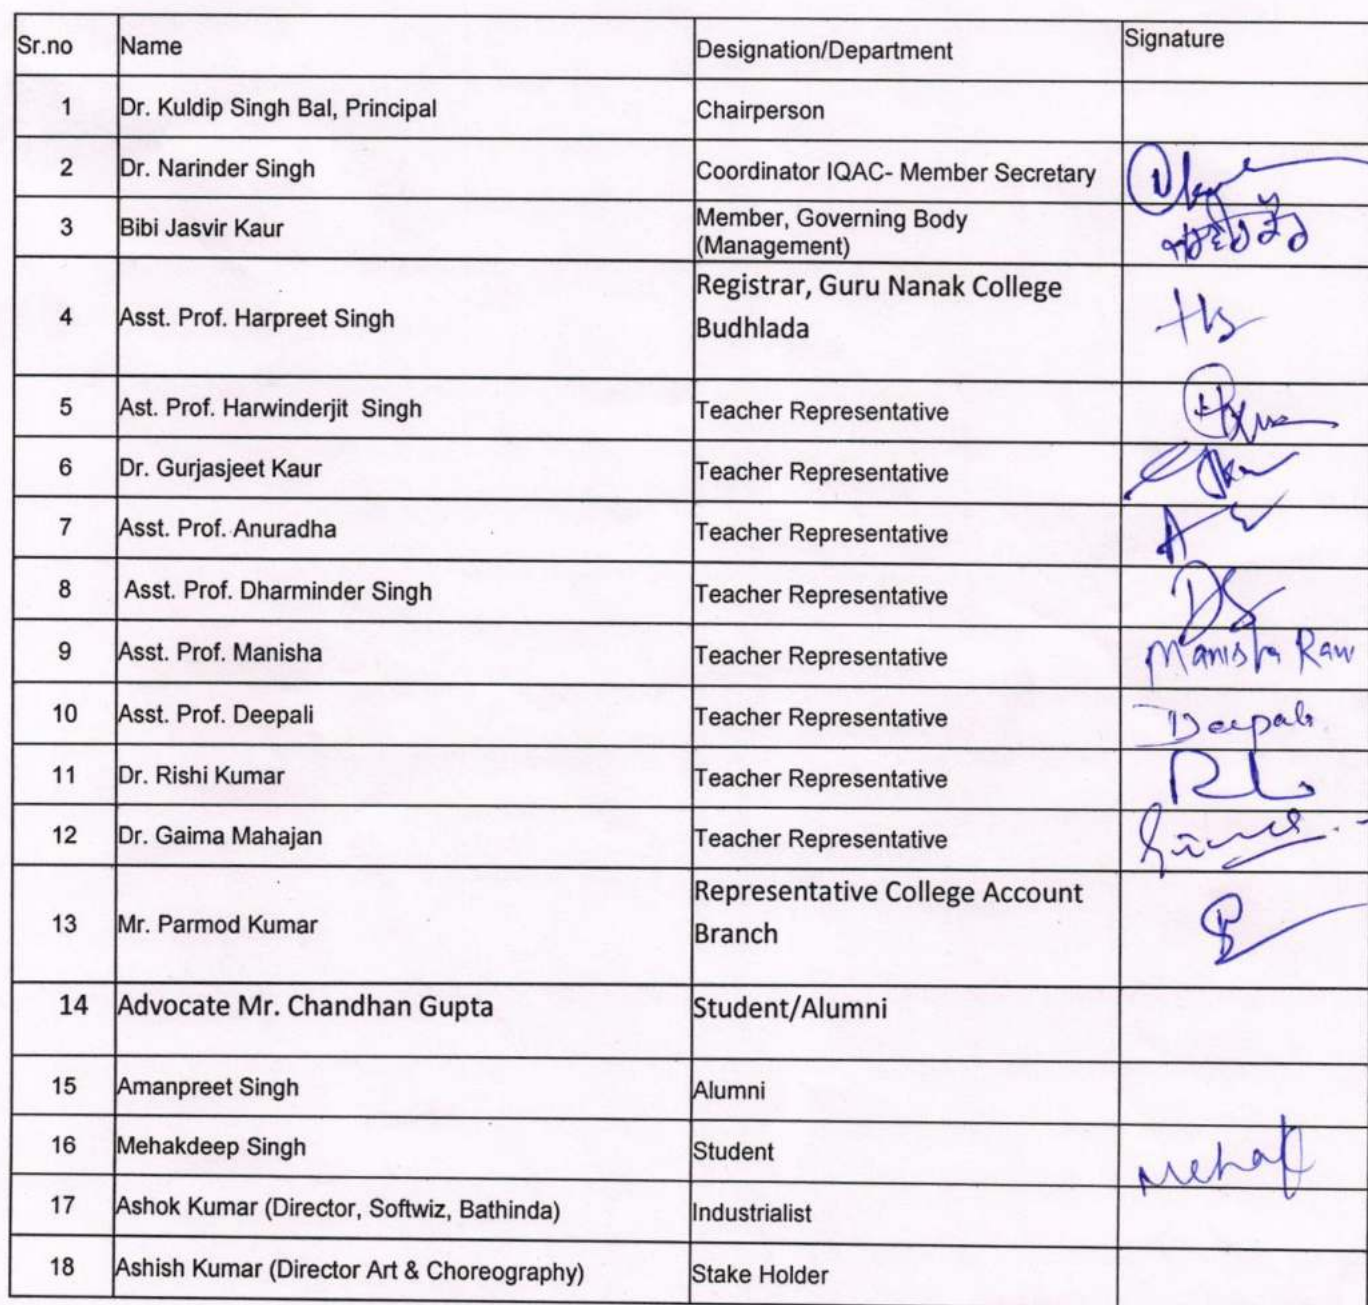 Sr.no Name Designation/Department Signature
1 Dr. Kuldip Singh Bal, Principal Chairperson
2 Dr. Narinder Singh Coordinator IQAC- Member Secretary
3 Bibi Jasvir Kaur Member, Governing Body
(Management)
4 Asst. Prof. Harpreet Singh Registrar, Guru Nanak College
Budhlada
5 Ast. Prof. Harwinderjit Singh Teacher Representative
6 Dr. Gurjasjeet Kaur Teacher Representative
7 Asst. Prof. Anuradha Teacher Representative
8 Asst. Prof. Dharminder Singh Teacher Representative
9 Asst. Prof. Manisha Teacher Representative Manisha
10 Asst. Prof. Deepali Teacher Representative Deepali
11 Dr. Rishi Kumar Teacher Representative
12 Dr. Gaima Mahajan Teacher Representative
13 Mr. Parmod Kumar Representative College Account
Branch
14 Advocate Mr. Chandhan Gupta Student/Alumni
15 Amanpreet Singh Alumni
16 Mehakdeep Singh Student Mehak
17 Ashok Kumar (Director, Softwiz, Bathinda) Industrialist
18 Ashish Kumar (Director Art & Choreography) Stake Holder